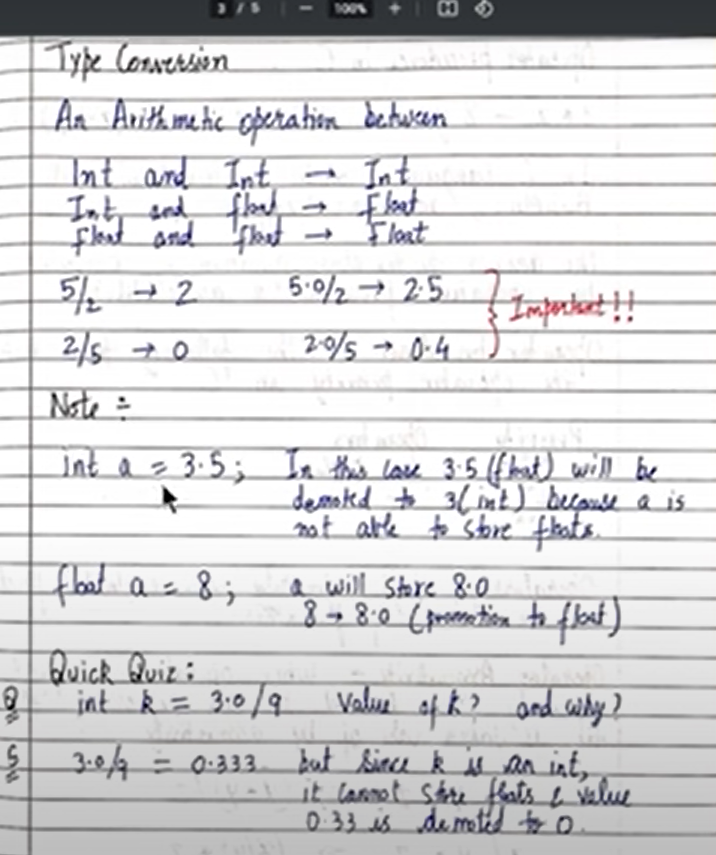 3 / 5 — 100% +
Type Conversion
An Arithmetic operation between
Int and Int → Int
Int and float → float
float and float → float
5/2 → 2 5.0/2 → 2.5
2/5 → 0 2.0/5 → 0.4
Important!!
Note ÷
int a = 3.5; In this case 3.5 (float) will be
demoted to 3(int) because a is
not able to store floats.
float a = 8; a will store 8.0
8 → 8.0 (promotion to float)
Quick Quiz:
Q int k = 3.0/9 Value of k? and why?
S 3.0/9 = 0.333 but since k is an int,
it cannot store floats & value
0.33 is demoted to 0.